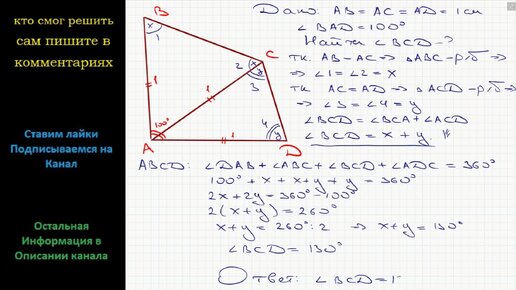 кто смог решить
сам пишите в
комментариях
Ставим лайки
Подписываемся на
Канал
Остальная
Информация в
Описании канала
B
x
1
C
2
x
y
3
1
1
100°
A
1
4
y
D
Дано: AB = AC = AD = 1 см
∠BAD = 100°
Найти ∠BCD - ?
т.к. AB = AC ⇒ △ABC - р/б ⇒
⇒ ∠1 = ∠2 = x
т.к. AC = AD ⇒ △ACD - р/б ⇒
⇒ ∠3 = ∠4 = y
∠BCD = ∠BCA + ∠ACD
∠BCD = x + y.
ABCD: ∠DAB + ∠ABC + ∠BCD + ∠ADC = 360°
100° + x + x + y + y = 360°
2x + 2y = 360° - 100°
2(x + y) = 260°
x + y = 260° : 2 ⇒ x + y = 130°
∠BCD = 130°
Ответ: ∠BCD = 1